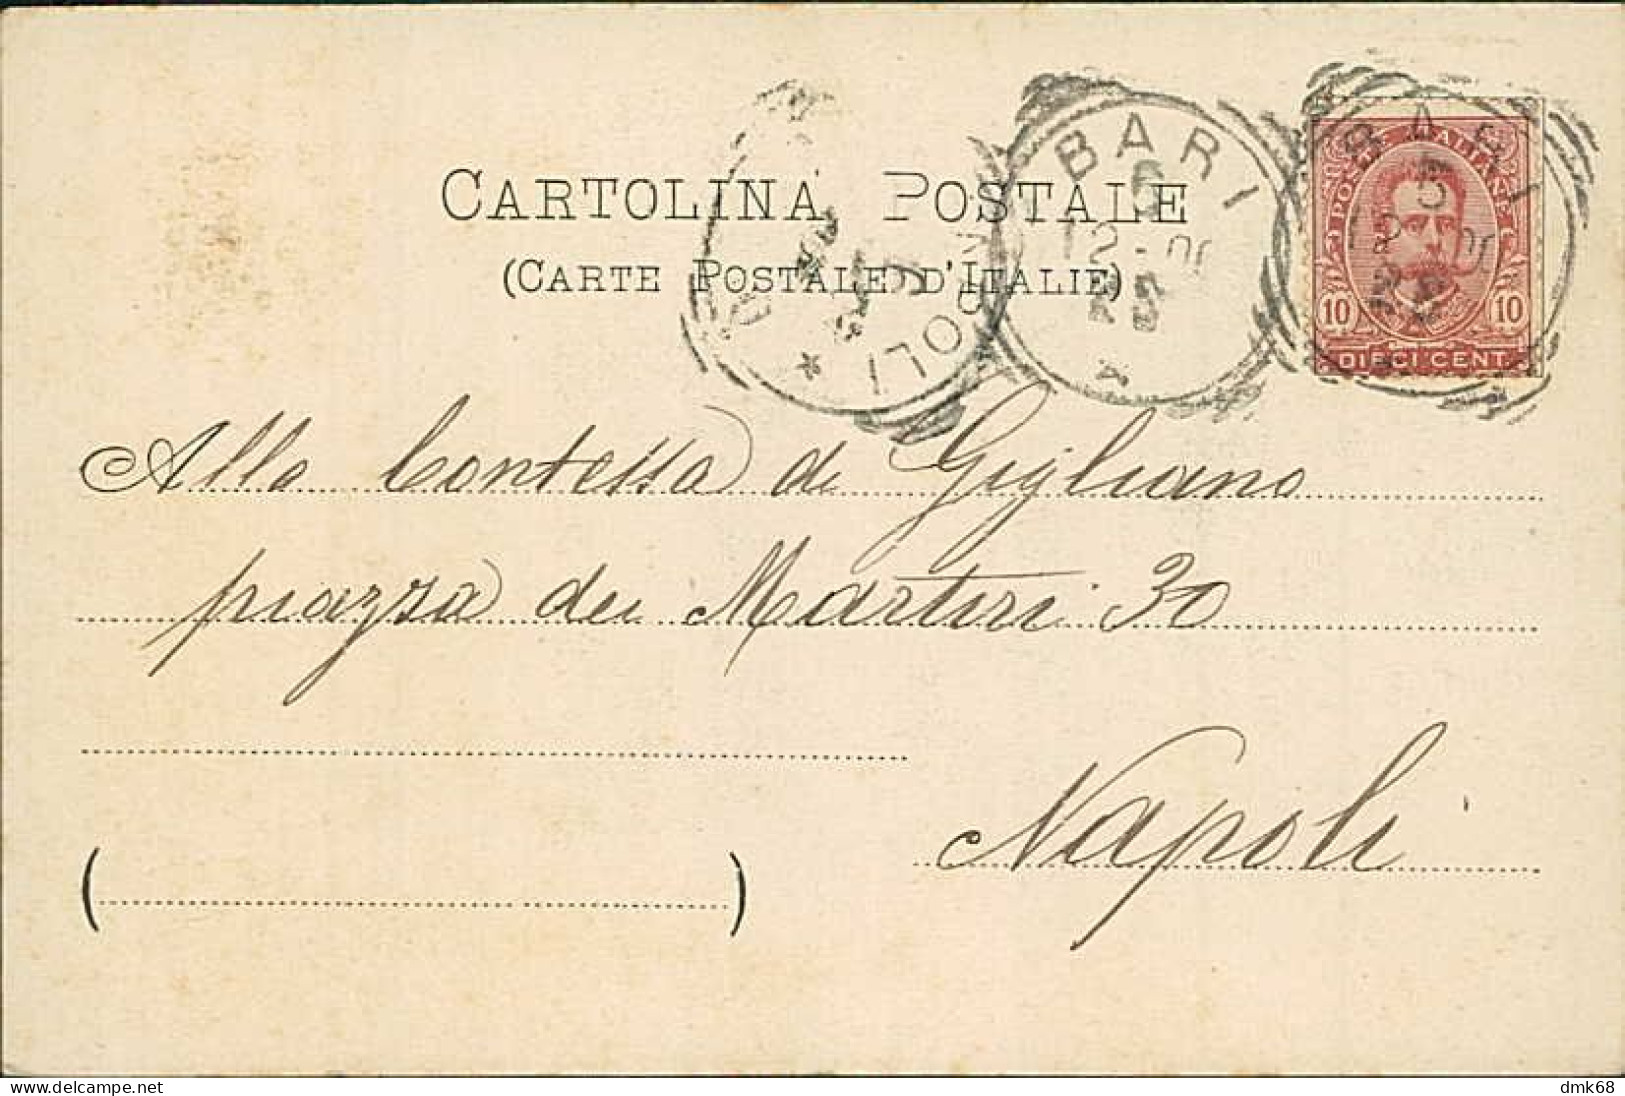 CARTOLINA POSTALE
(CARTE POSTALE D'ITALIE)
BARI
6
12-00
BARI
5
10 10
DIECI CENT.
Alla Contessa di Gigliano
piazza dei Martiri 30
Napoli
delcampe.net
dmk68